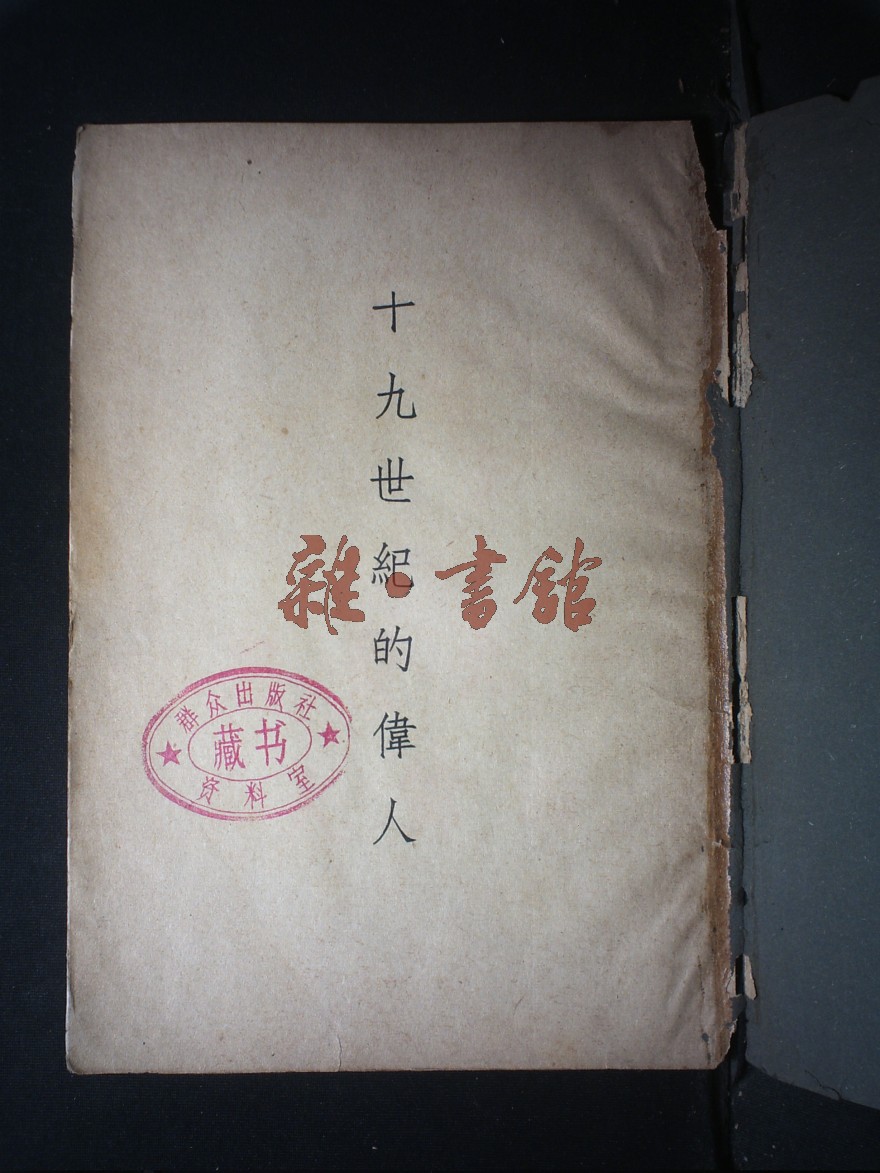 十九世紀的偉人
雜·書館
群众出版社
藏书
资料室